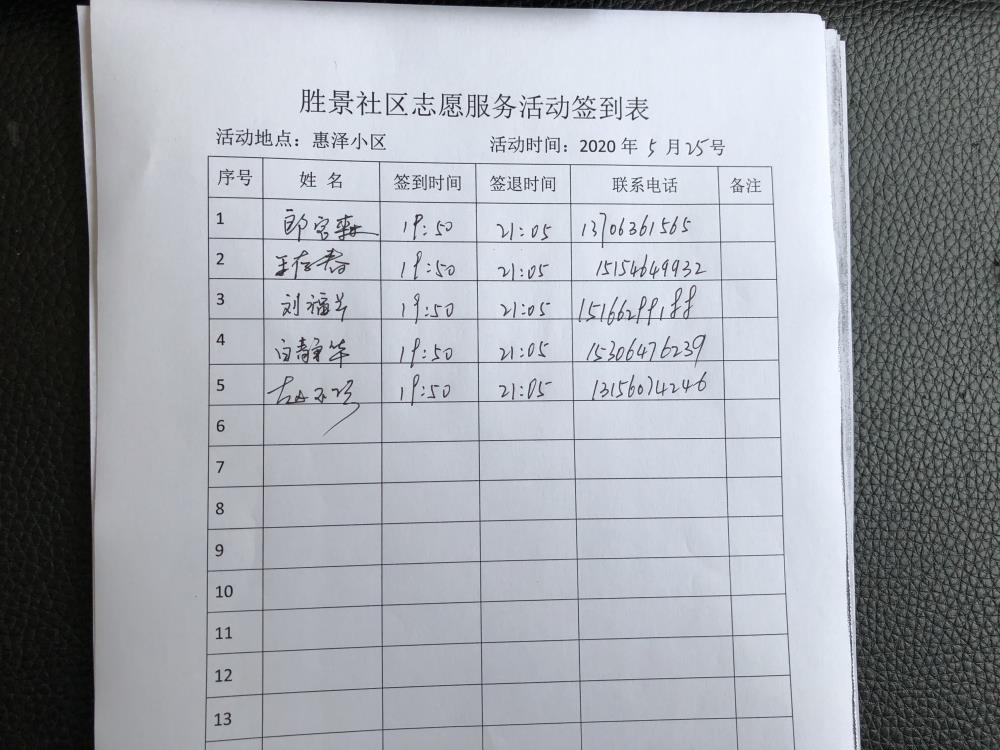 胜景社区志愿服务活动签到表
活动地点：惠泽小区 活动时间：2020 年 5 月 25 号
序号 姓 名 签到时间 签退时间 联系电话 备注
1 19:50 21:05 13706361565
2 王存春 19:50 21:05 15154649932
3 刘福兰 19:50 21:05
4 白静华 19:50 21:05 15306476239
5 19:50 21:05 13156074246
6
7
8
9
10
11
12
13